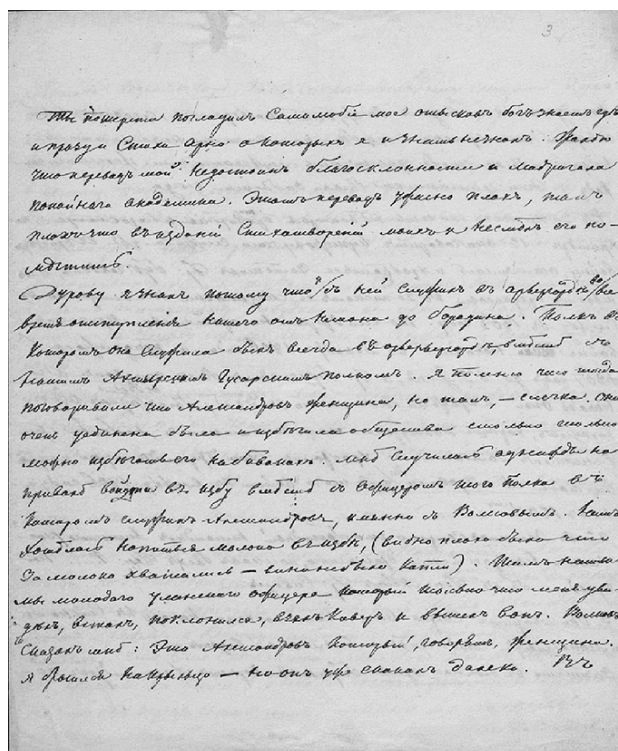 3
Ты по шерсти погладилъ самолюбіе мое отыскавъ богъ знаетъ гдѣ
и прозу и Стихи Арно о которыхъ я и знать не зналъ. Жалко
что переводъ мой недостоинъ благосклонности и мадригала
покойнаго академика. Этотъ переводъ ужасно плохъ, такъ
плохъ что въ изданіи Стихотвореній моихъ я не смѣлъ его по-
мѣстить.
Дурову я зналъ потому что я съ ней служилъ въ арьергардѣ, во все
время отступленія нашего отъ Немана до Бородина. Полкъ въ
которомъ она служила былъ всегда въ арьергардѣ, вмѣстѣ съ
нашимъ Ахтырскимъ Гусарскимъ полкомъ. Я помню что тогда
поговаривали что Александровъ женщина, но такъ, – слегка. Она
очень уединена была и избѣгала общества столько сколько
можно избѣгать его на бивакахъ. Мнѣ случилось однажды на
привалѣ войти въ избу вмѣстѣ съ офицеромъ того полка въ
которомъ служилъ Александровъ, именно съ Волковымъ. Намъ
хотѣлось напиться молока въ избѣ, (видно плохо было что
за молоко хватились – вина небыло капли). Тамъ нашли
мы молодаго уланскаго офицера который только что меня уви-
дѣлъ, всталъ, поклонился, взялъ киверъ и вышелъ вонъ. Волковъ
сказалъ мнѣ: это Александровъ который, говорятъ, женщина.
Я бросился на крыльцо – но онъ уже скакалъ далеко. Въ